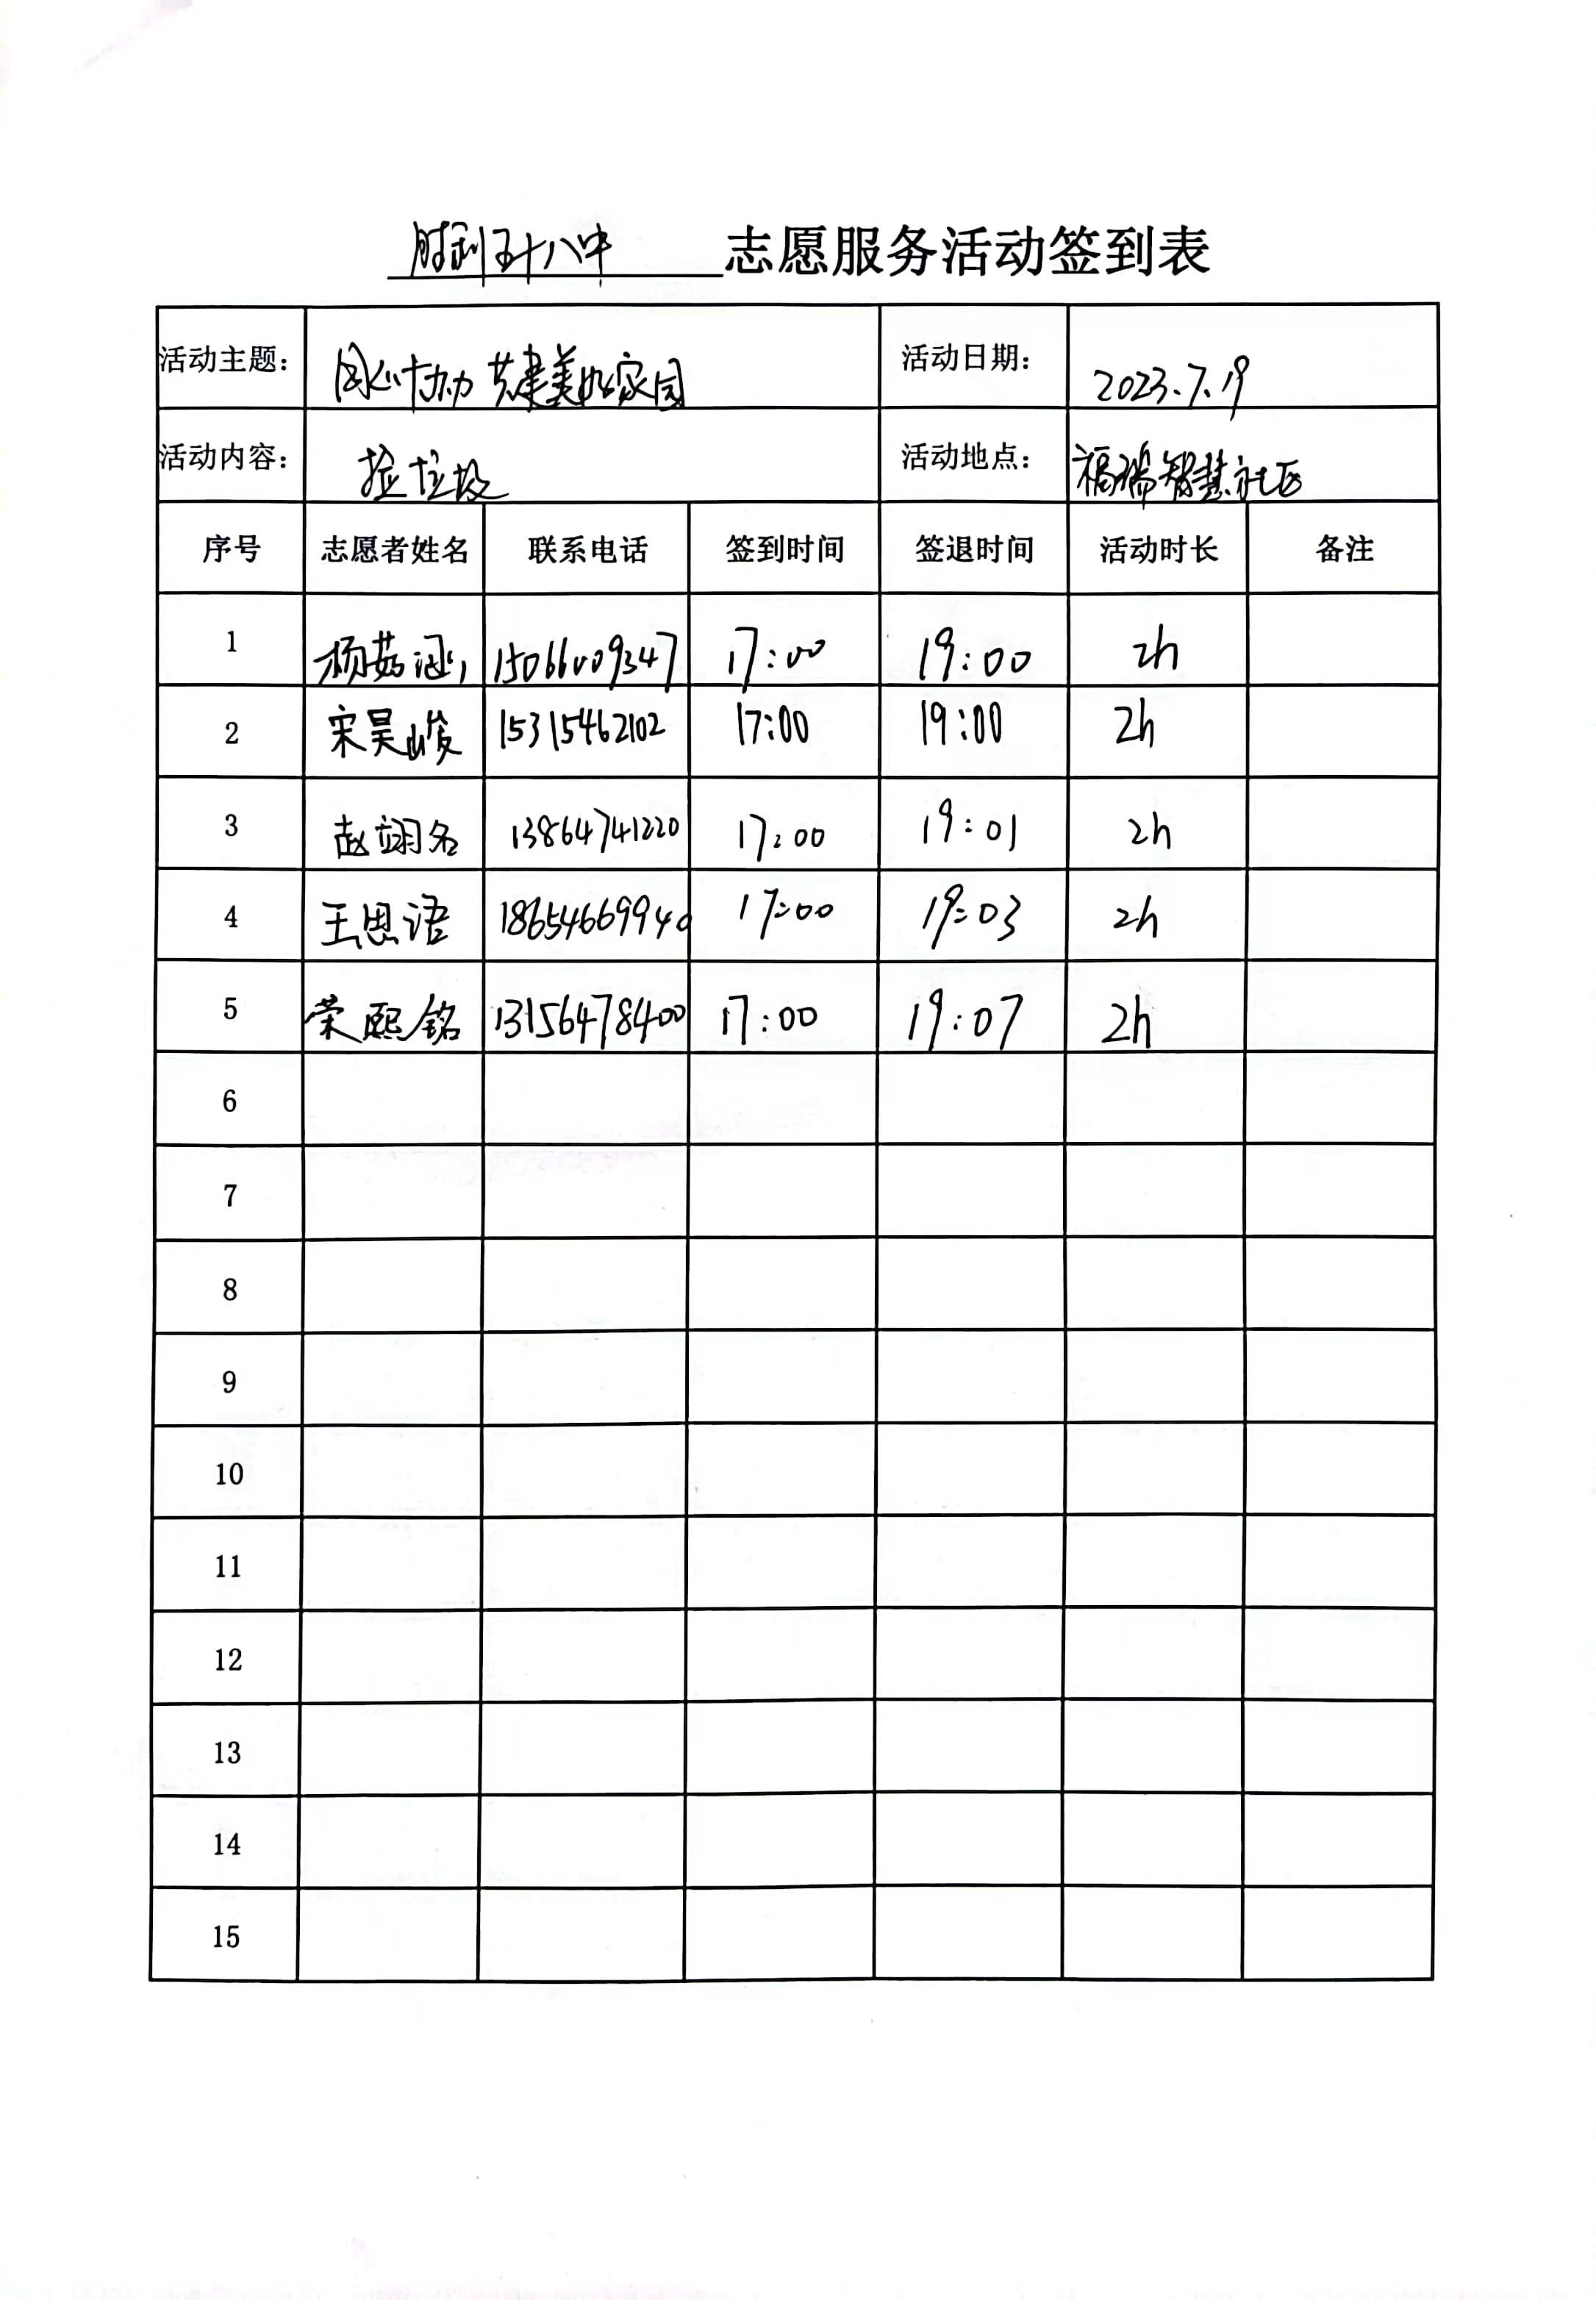 胜利五十八中 志愿服务活动签到表
活动主题: 同心协力 共建美好家园 活动日期: 2023.7.19
活动内容: 捡垃圾 活动地点: 福瑞智慧社区
序号 志愿者姓名 联系电话 签到时间 签退时间 活动时长 备注
1 杨茹涵 15066009347 17:00 19:00 2h
2 宋昊峻 15315462102 17:00 19:00 2h
3 赵翊名 13864741220 17:00 19:01 2h
4 王思语 18654669940 17:00 19:03 2h
5 荣熙铭 13156478400 17:00 19:07 2h
6
7
8
9
10
11
12
13
14
15